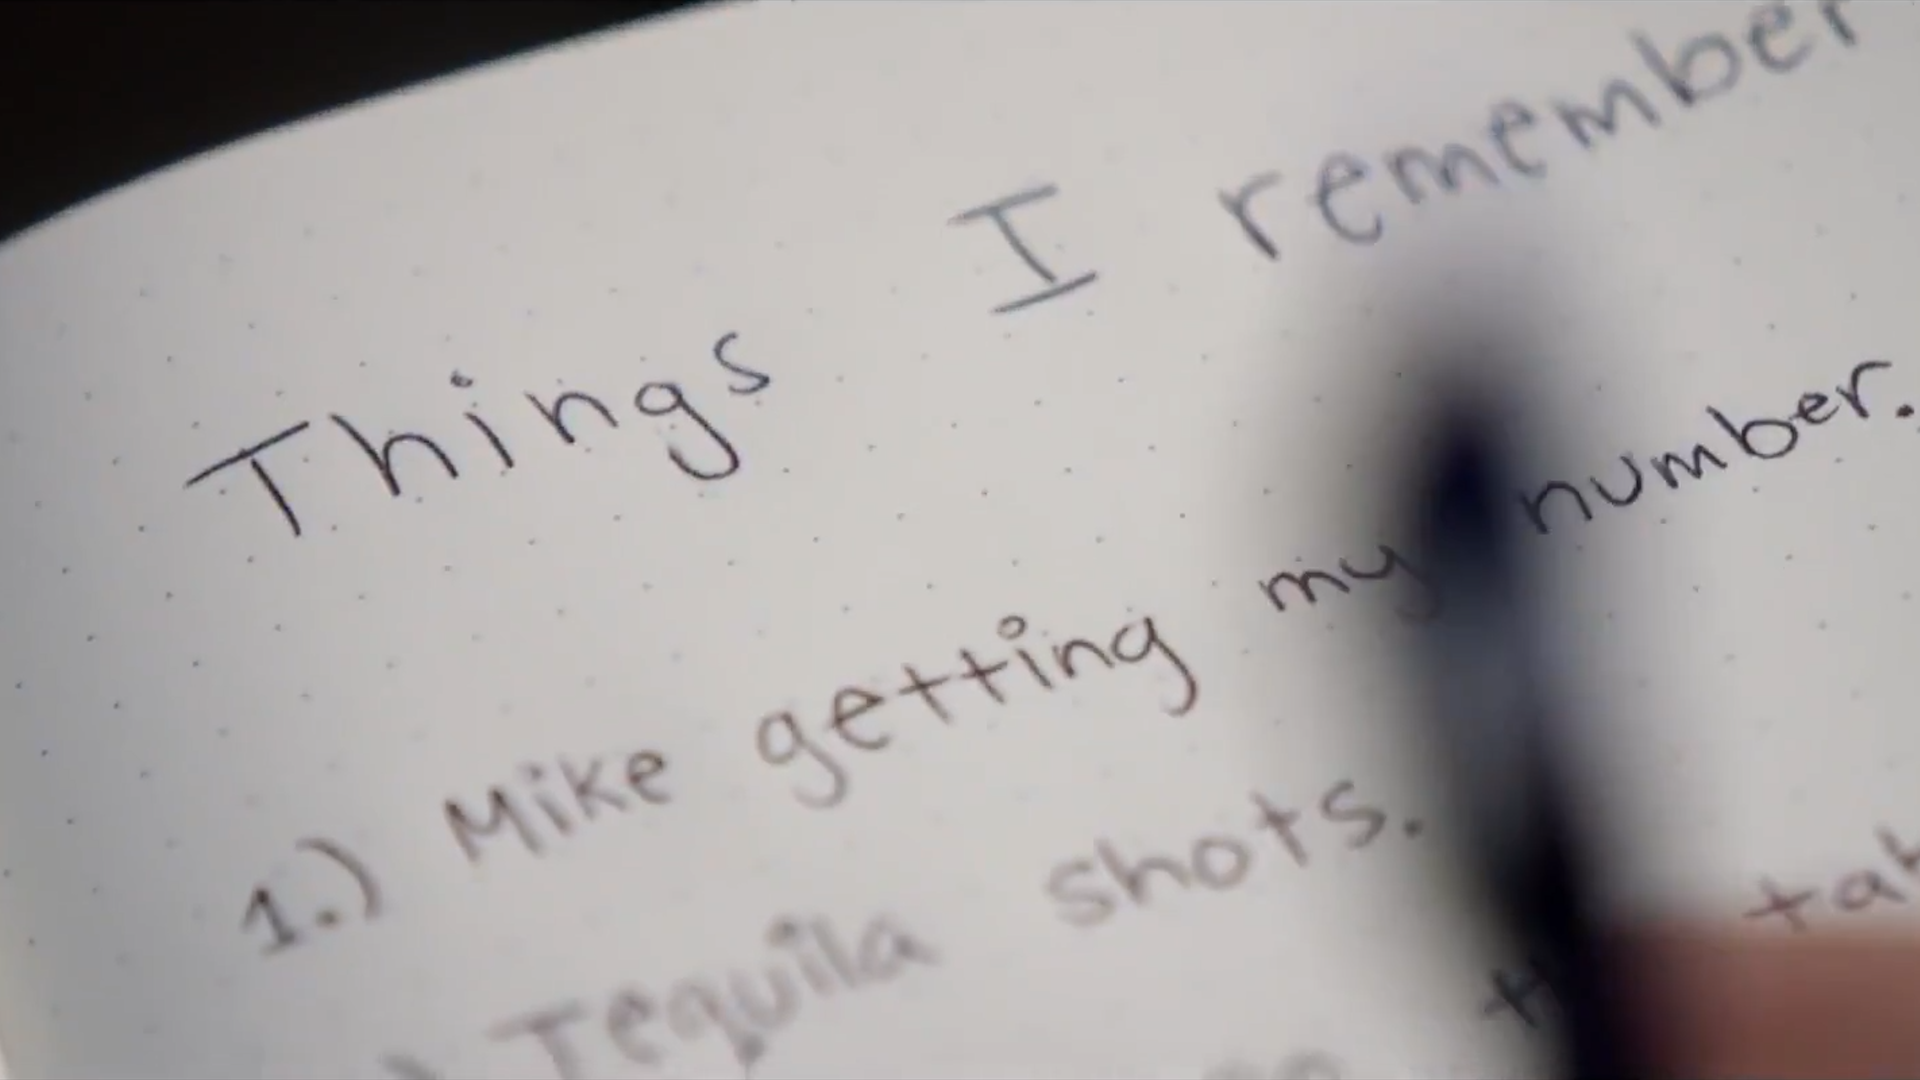 Things I remember
1.) Mike getting my number.
) Tequila shots.